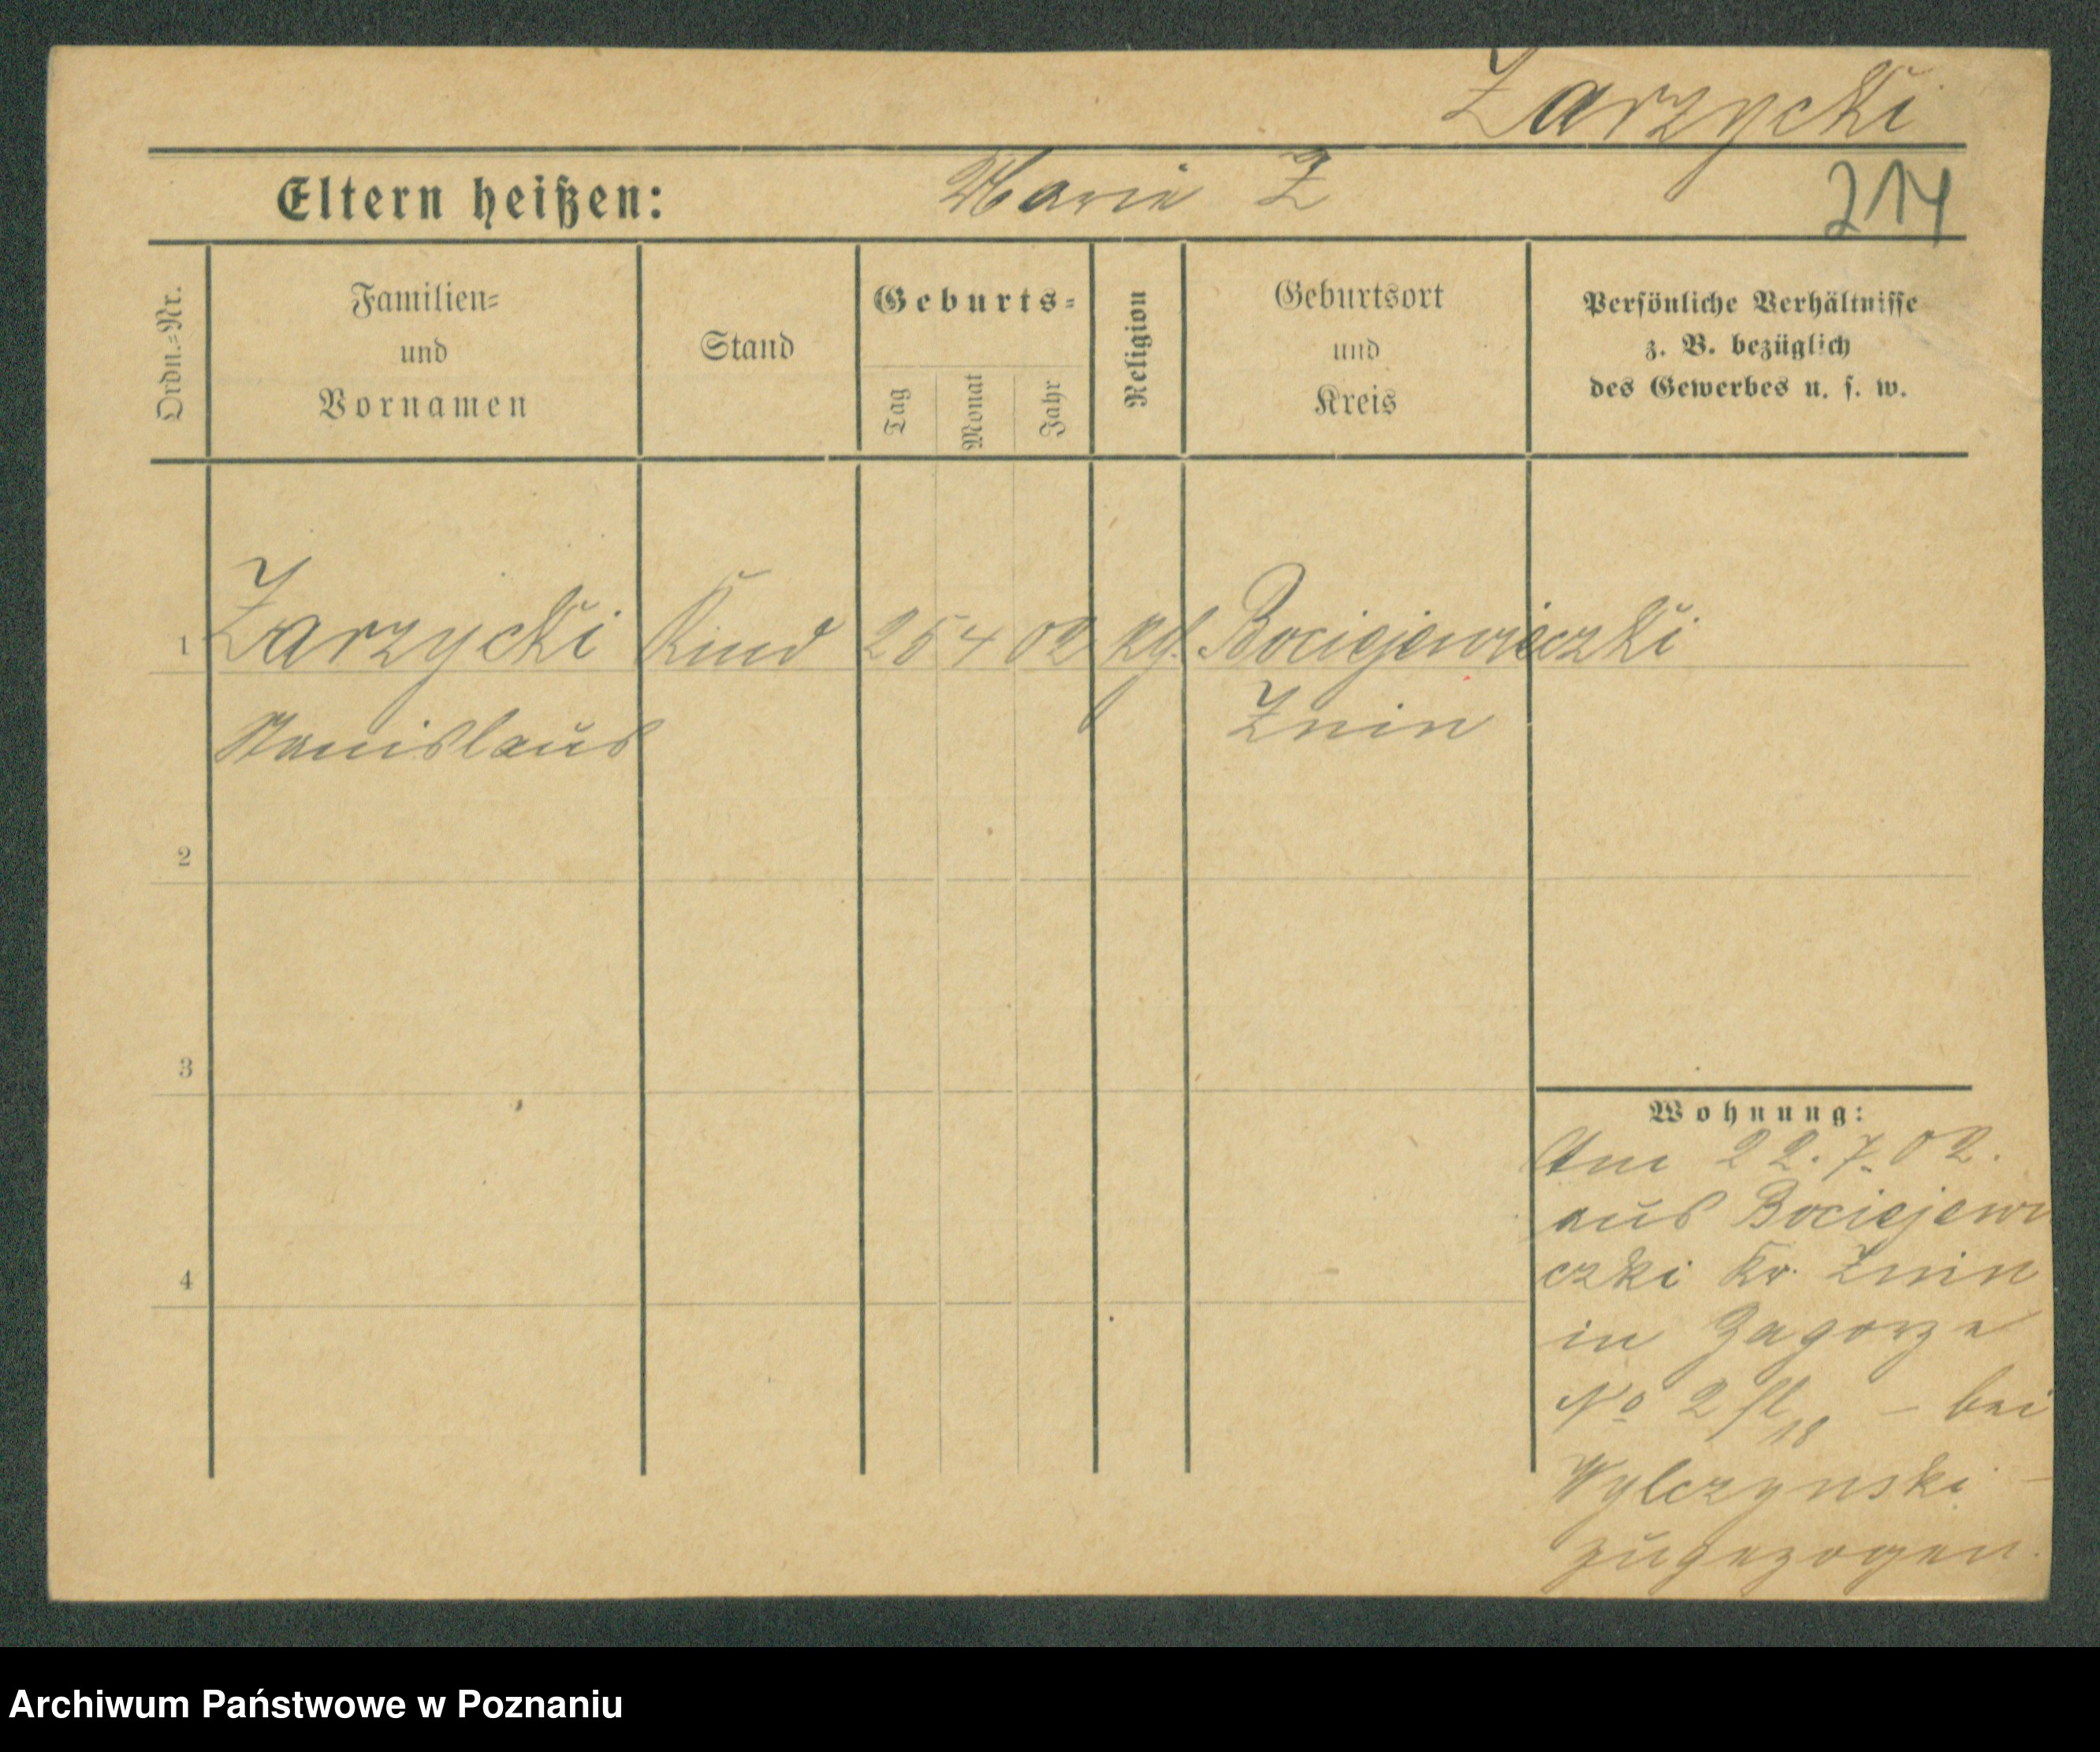 Zarzycki
Eltern heißen: Marie Z
214
Ordn.-Nr.
Familien-
und
Vornamen
Stand
Geburts-
Tag
Monat
Jahr
Religion
Geburtsort
und
Kreis
Persönliche Verhältnisse
z. B. bezüglich
des Gewerbes u. s. w.
1 Zarzycki Kind 25 4 02 Bociejewieczki
Stanislaus Znin
2
3
4
Wohnung:
Am 22.7.02.
aus Bociejewi
czki Kr. Znin
in Zagorze
No 2 – bei
Wylczynski –
zugezogen.
Archiwum Państwowe w Poznaniu